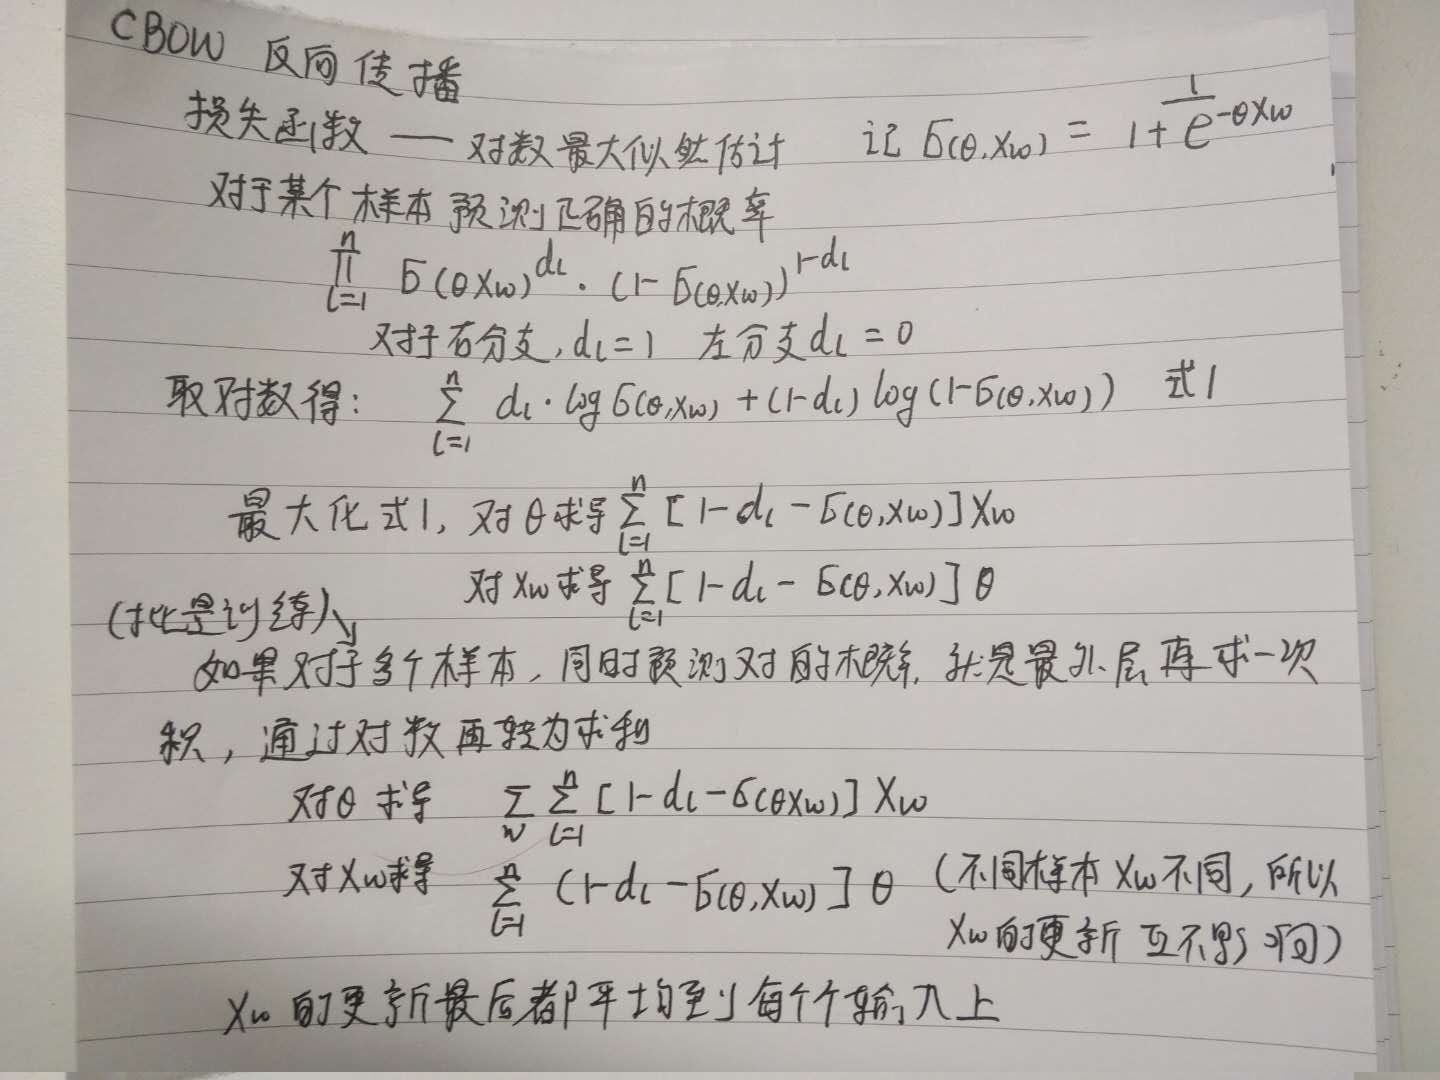 CBOW 反向传播
损失函数 —— 对数最大似然估计 记 σ(θ,Xw) = 1/(1+e^{-θXw})
对于某个样本预测正确的概率
∏_{l=1}^{n} σ(θXw)^{dl} · (1-σ(θ,Xw))^{1-dl}
对于右分支,dl=1 左分支dl=0
取对数得: ∑_{l=1}^{n} dl·logσ(θ,Xw)+(1-dl)log(1-σ(θ,Xw)) 式1
最大化式1,对θ求导∑_{l=1}^{n}[1-dl-σ(θ,Xw)]Xw
对Xw求导∑_{l=1}^{n}[1-dl-σ(θ,Xw)]θ
(批量训练)↘
如果对于多个样本,同时预测对的概率,就是最外层再求一次
积,通过对数再转为求和
对θ求导 ∑_w ∑_{l=1}^{n}[1-dl-σ(θXw)]Xw
对Xw求导 ∑_{l=1}^{n}(1-dl-σ(θ,Xw)]θ (不同样本Xw不同,所以
Xw的更新互不影响)
Xw的更新最后都平均到每个个输入上